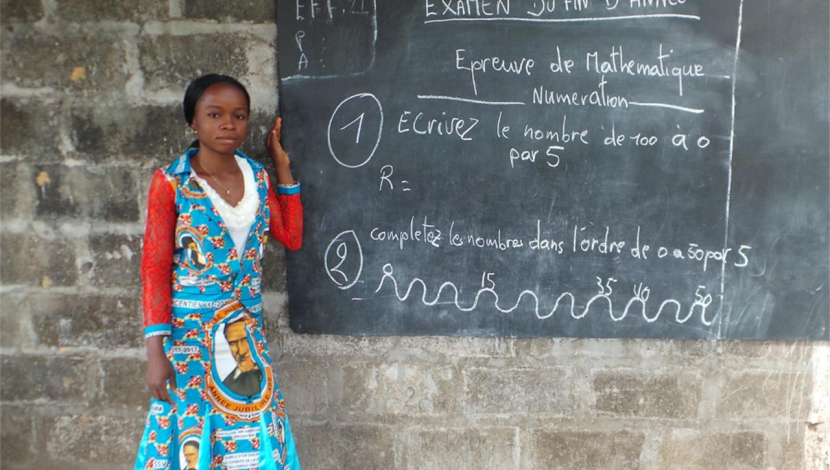 EFF. 22
P
A:
EXAMEN DU FIN D'ANNÉE
Epreuve de Mathematique
Numeration
1 Ecrivez le nombre de 100 à 0
par 5
R =
2 completez les nombres dans l'ordre de 0 a 50 par 5
0 15 35 40 50
ANNEE JUBILAIRE